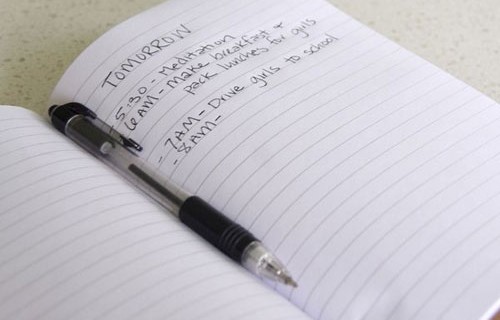 TOMORROW
- 5:30 - Meditation
- 6AM - Make breakfast &
pack lunches for girls
- 7AM - Drive girls to school
- 8AM -